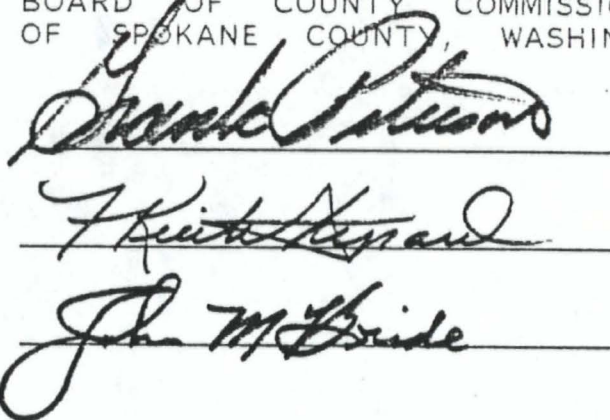 BOARD OF COUNTY COMMISSIO
OF SPOKANE COUNTY, WASHIN
Grant Peterson
Keith Shepard
John McBride